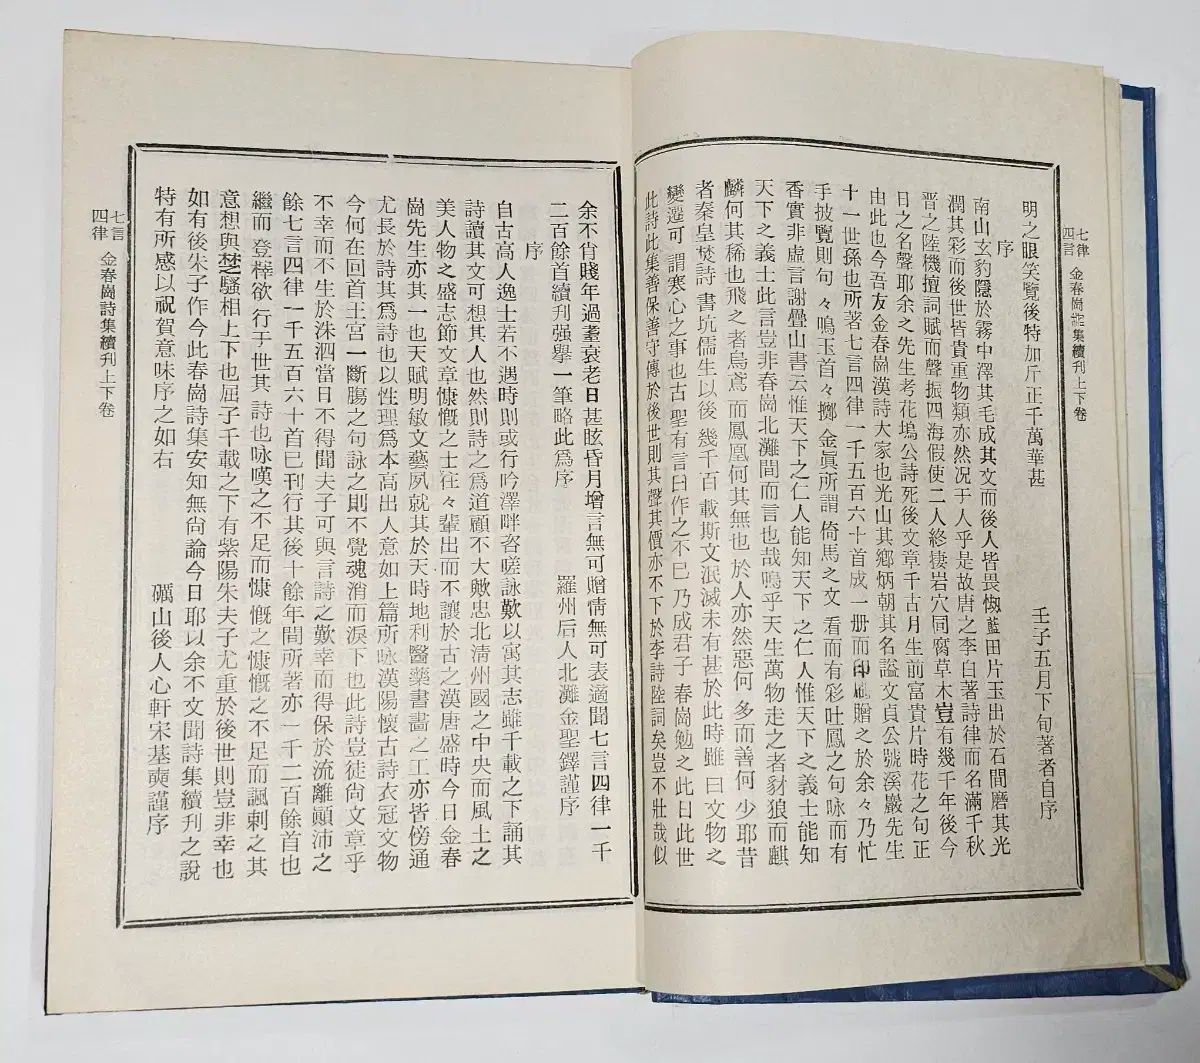 七律
四言 金春崗詩集續刊上下卷
明之眼笑覽後特加斤正千萬華甚
壬子五月下旬著者自序
序
南山玄豹隱於霧中澤其毛成其文而後人皆畏惙藍田片玉出於石間磨其光
潤其彩而後世皆貴重物類亦然况于人乎是故唐之李白著詩律而名滿千秋
晋之陸機擅詞賦而聲振四海假使二人終棲岩穴同腐草木豈有幾千年後今
日之名聲耶余之先生考花塢公詩死後文章千古月生前富貴片時花之句正
由此也今吾友金春崗漢詩大家也光山其鄉炳朝其名謚文貞公號溪巖先生
十一世孫也所著七言四律一千五百六十首成一册而印贈之於余々乃忙
手披覽則句々鳴玉首々擲金眞所謂倚馬之文看而有彩吐鳳之句咏而有
香實非虛言謝疊山書云惟天下之仁人能知天下之仁人惟天下之義士能知
天下之義士此言豈非春崗北灘間而言也哉鳴乎天生萬物走之者豺狼而麒
麟何其稀也飛之者烏鳶而鳳凰何其無也於人亦然惡何多而善何少耶昔
者秦皇焚詩書坑儒生以後幾千百載斯文泯滅未有甚於此時雖曰文物之
變遷可謂寒心之事也古聖有言曰作之不已乃成君子春崗勉之此日此世
此詩此集善保善守傳於後世則其聲其價亦不下於李詩陸詞矣豈不壯哉似
余不肖賤年過耋衰老日甚眩昏月增言無可贈情無可表適聞七言四律一千
二百餘首續刊强擧一筆略此爲序
羅州后人北灘金聖鐸謹序
序
自古高人逸士若不遇時則或行吟澤畔咨嗟詠歎以寓其志雖千載之下誦其
詩讀其文可想其人也然則詩之爲道顧不大歟忠北淸州國之中央而風土之
美人物之盛志節文章慷慨之士往々輩出而不讓於古之漢唐盛時今日金春
崗先生亦其一也天賦明敏文藝夙就其於天時地利醫藥書畵之工亦皆傍通
尤長於詩其爲詩也以性理爲本高出人意如上篇所咏漢陽懷古詩衣冠文物
今何在回首王宮一斷腸之句詠之則不覺魂消而淚下也此詩豈徒尙文章乎
不幸而不生於洙泗當日不得聞夫子可與言詩之歎幸而得保於流離顚沛之
餘七言四律一千五百六十首已刊行其後十餘年間所著亦一千二百餘首也
繼而登梓欲行于世其詩也咏嘆之不足而慷慨之慷慨之不足而諷刺之其
意想與楚騷相上下也屈子千載之下有紫陽朱夫子尤重於後世則豈非幸也
如有後朱子作今此春崗詩集安知無尙論今日耶以余不文聞詩集續刊之說
特有所感以祝賀意味序之如右
礪山後人心軒宋基奭謹序
七言
四律 金春崗詩集續刊上下卷